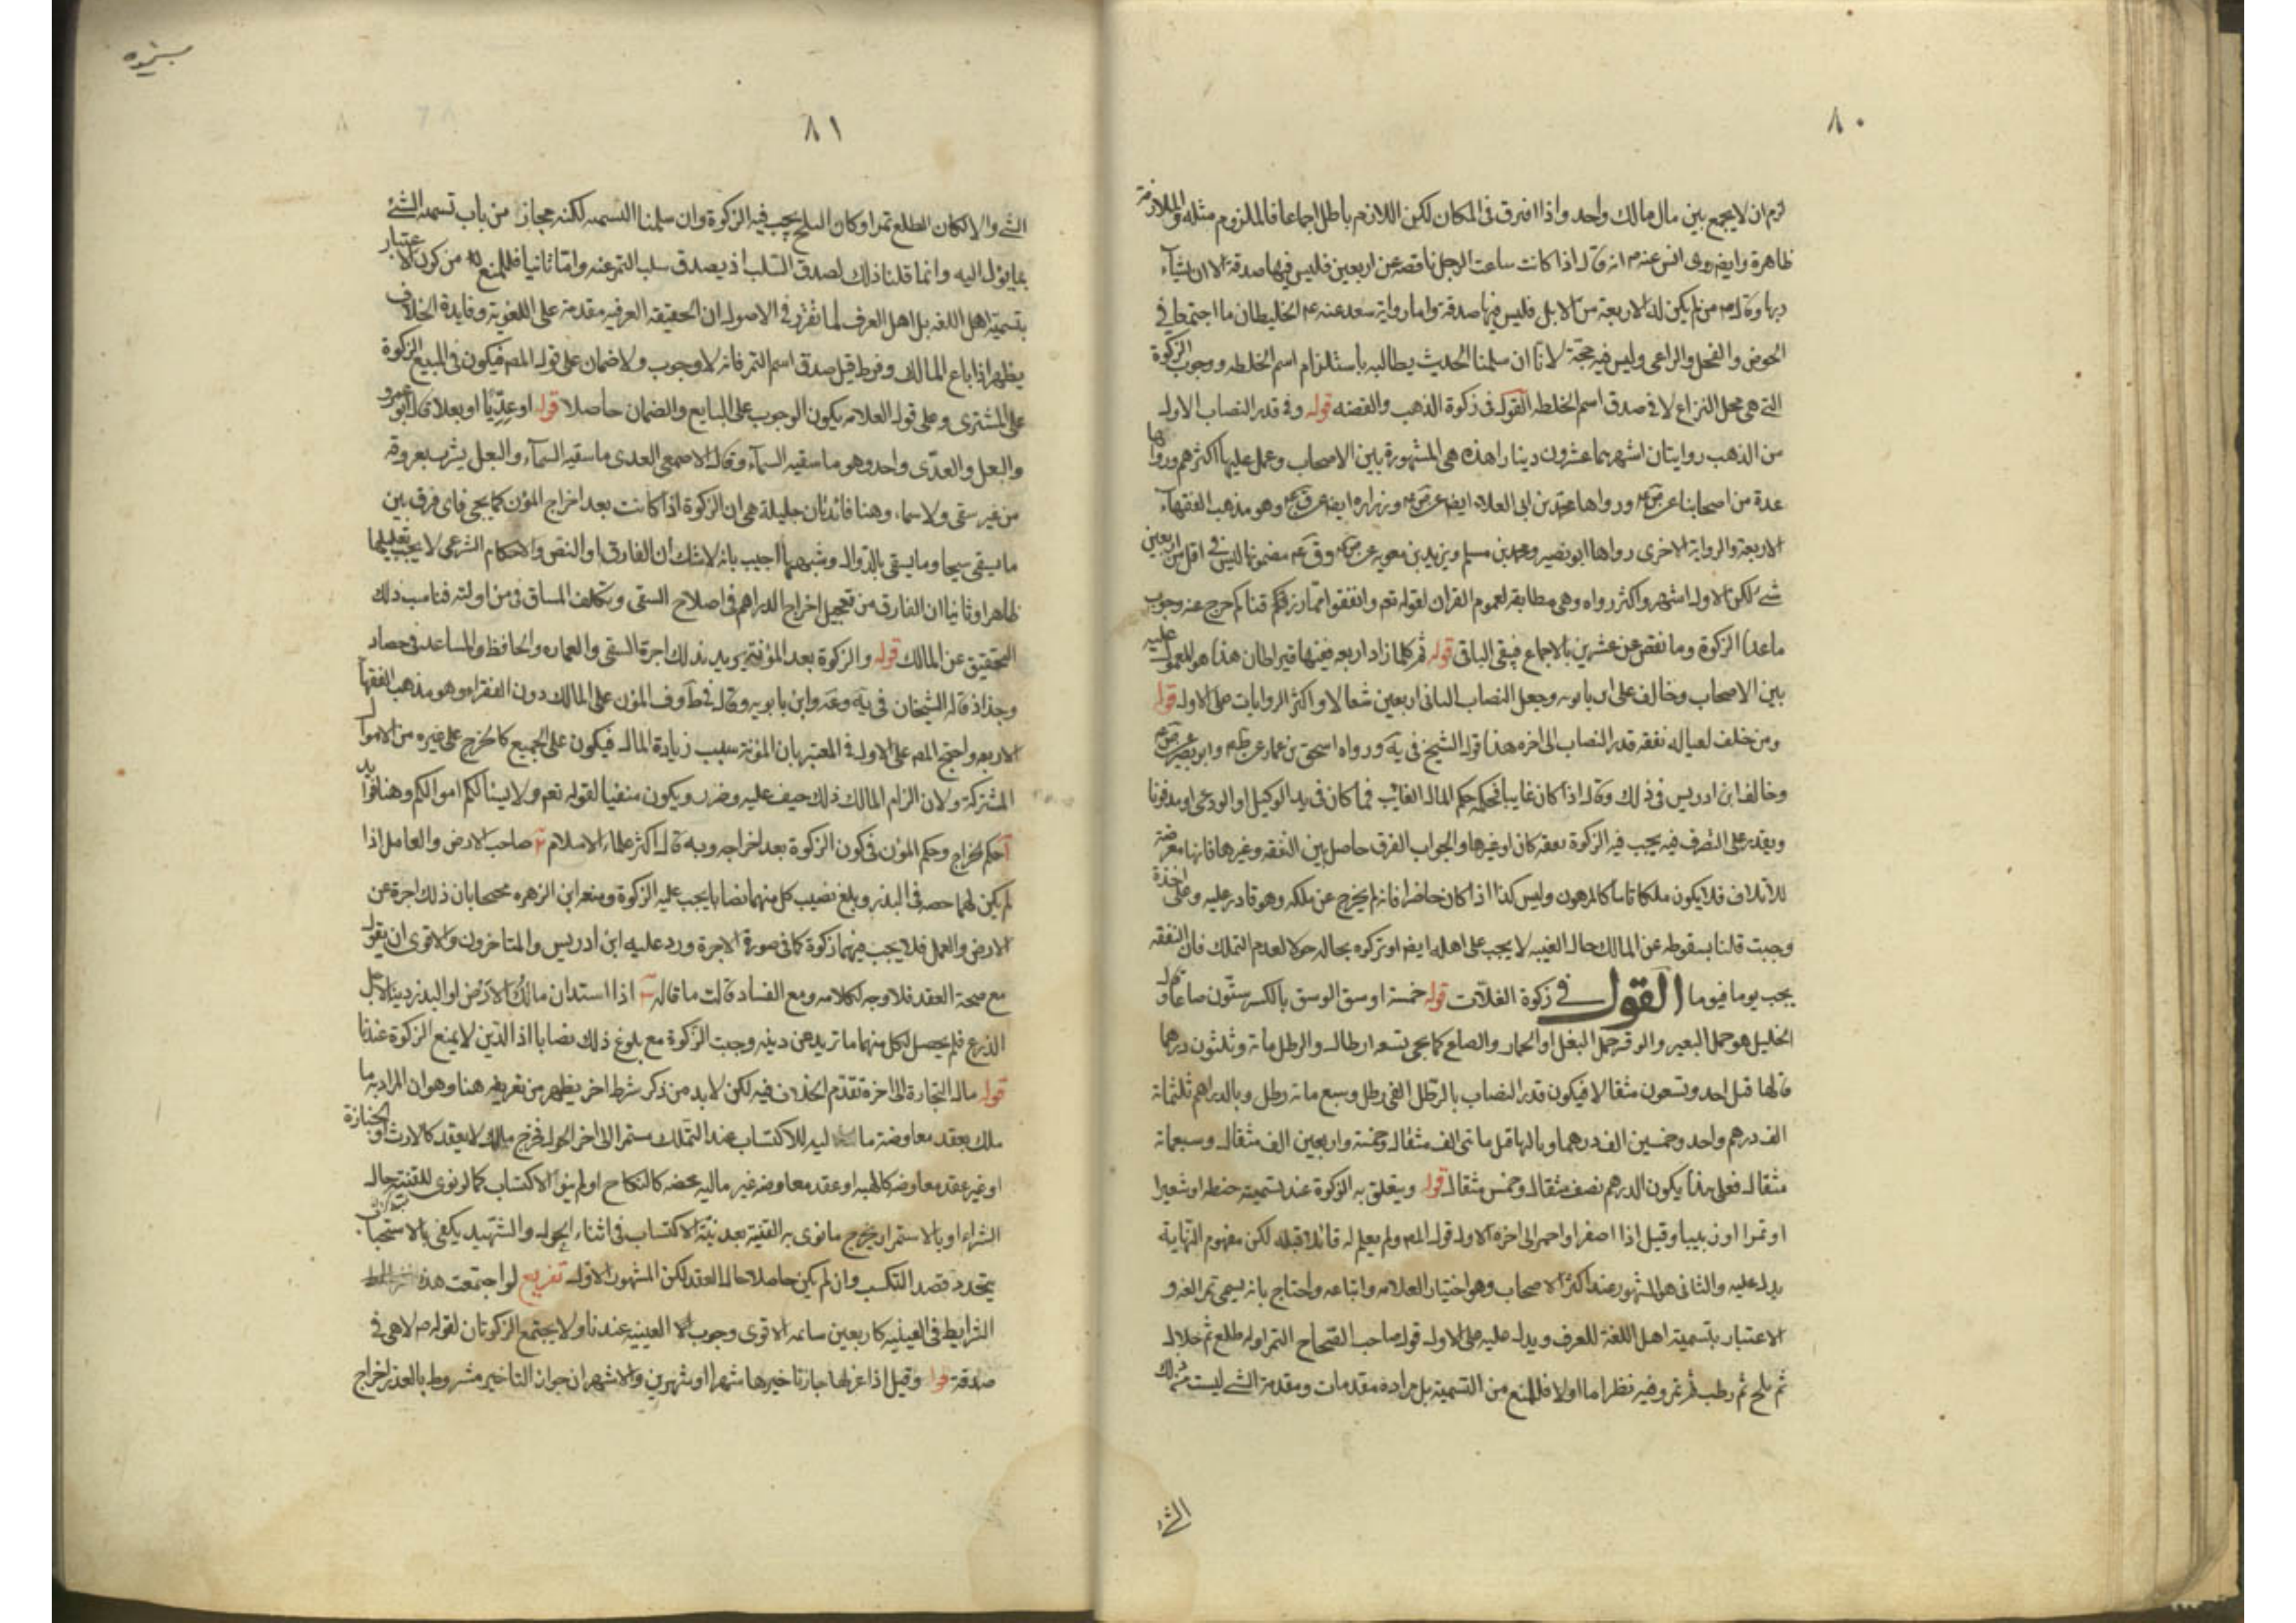 ٨٠
لزم ان لا يجمع بين مال مالك واحد واذا افترق فى المكان لكن اللازم باطل اجماعا فالملزوم مثله والملازمة
ظاهرة وايضا روى انس عنه م انه قال اذا كانت ساعت الرجل ناقصة عن اربعين فليس فيها صدقة الا ان يشاء
ربها وقال م من لم يكن له الا اربعة من الابل فليس فيها صدقة واما رواية سعد عنه م الخليطان ما اجتمعا فى
الحوض والفحل والراعى وليس فيه حجة لانا ان سلمنا الحديث يطالبه باستلزام اسم الخلطه ووجوب الزكوة
التى هى محل النزاع لا فى صدق اسم الخلطه القول فى زكوة الذهب والفضه قوله وفى قدر النصاب الاول
من الذهب روايتان اشهرهما عشرون دينارا هذه هى المشهورة بين الاصحاب وعمل عليها اكثرهم ورواها
عدة من اصحابنا عن ورواها محمد بن ابى العلاء ايضا عن وزراره ايضا عن وهو مذهب الفقهاء
الاربعة والرواية الاخرى رواها ابو بصير ومحمد بن مسلم ويزيد بن معويه عن مضمونها ليس فى اقل من اربعين
شئ لكن الاول اشهر واكثر رواه وهى مطابقة لعموم القران لقوله تعم وانفقوا مما رزقكم خرج عنه وجوب
ماعدا الزكوة وما نقص عن عشرين بالاجماع فيبقى الباقى قوله ثم كلما زاد اربعه ففيها قيراطان هذا هو المعمول عليه
بين الاصحاب وخالف على ابن بابويه وجعل النصاب الثانى اربعين مثقالا واكثر الروايات على الاول قوله
ومن خلف لعياله نفقه قدر النصاب الى اخره هذا قول الشيخ فى يه ورواه اسحق بن عمار عن وابو بصير عن
وخالف ابن ادريس فى ذلك وقال اذا كان غايبا فحكمه حكم المال الغائب فما كان فى يد الوكيل او الودعى او مدفونا
ويقدر على التصرف فيه يجب فيه الزكوة نفقه كان او غيرها والجواب الفرق حاصل بين النفقه وغيرها فانها معرضة
للاتلاف فلا يكون ملكا تاما كالمرهون وليس كذا اذا كان حاضرا فانه لم يخرج عن ملكه وهو قادر عليه وعلى اخذه
وجبت قلنا بسقوطه عن المالك حال الغيبه لا يجب على اهله ايضا لو تركوه بحاله حولا لعدم التملك فان النفقه
يجب يوما فيوما القول فى زكوة الغلات قوله خمسة اوسق الوسق بالكسر ستون صاعا وقال
الخليل هو حمل البعير والوقر حمل البغل او الحمار والصاع كما يجى تسعه ارطال والرطل مائة وثلثون درهما
قالها قبل احد وتسعون مثقالا فيكون قدر النصاب بالرطل الفى رطل وسبع مائة رطل وبالدراهم ثلثمائة
الف درهم واحد وخمسين الف درهما وبالمثاقل مائتى الف مثقال وخمسة واربعين الف مثقال وسبعمائة
مثقال فعلى هذا يكون الدرهم نصف مثقال وخمس مثقال قوله ويتعلق به الزكوة عند تسميته حنطه او شعيرا
او تمرا او زبيبا وقيل اذا اصفر او احمر الى اخره الاول قول المص ولم يعلم له قائلا قبله لكن مفهوم النهاية
يدل عليه والثانى هو المشهور عند اكثر الاصحاب وهو اختيار العلامه واتباعه واحتاج بانه يسمى تمرا لغه و
الاعتبار بتسمية اهل اللغة للعرف ويدل عليه على الاول قول صاحب الصحاح التمر اوله طلع ثم خلال
ثم بلح ثم رطب ثم تمر وفيه نظر اما اولا فللمنع من التسمية بل مراده مقدمات ومقدمة الشئ ليست من ذلك
الشئ
٨١
الشئ والا لكان الطلع تمرا وكان البلح يجب فيه الزكوة وان سلمنا التسمية لكنه مجاز من باب تسمية الشئ
بما يؤل اليه وانما قلنا ذلك لصدق السلب اذ يصدق سلب التمر عنه واما ثانيا فللمنع من كون الاعتبار
بتسمية اهل اللغه بل اهل العرف لما تقرر فى الاصول ان الحقيقه العرفيه مقدمة على اللغوية وفايدة الخلاف
يظهر اذا باع المالك وفرط قبل صدق اسم التمر فانه لا وجوب ولا ضمان على قول المص فيكون فى المبيع الزكوة
على المشترى وعلى قول العلامه يكون الوجوب على البايع والضمان حاصلا قوله او عذيا او بعلا قال ابو عمرو
والبعل والعذى واحد وهو ما سقيه السماء وقال الاصمعى العذى ما سقيه السماء والبعل يشرب بعروقه
من غير سقى ولا سماء وهنا فائدتان جليلة هى ان الزكوة اذا كانت بعد اخراج المؤن كما يجى فاى فرق بين
ما يسقى سيحا وما يسقى بالدوالى وشبهها اجيب بانه لا شك ان الفارق اولا النص والاحكام الشرعى لا يجب تعليلها
ظاهرا وثانيا ان الفارق من تعجيل اخراج الدراهم فى اصلاح السقى ويتكلف المساق فى من اولته فناسب ذلك
التحقيق عن المالك قوله والزكوة بعد المؤنة يريد بذلك اجرة السقى والعماره والحافظ والمساعد فى حصاد
وجذاذ قاله الشيخان فى يه وعه وابن بابويه وقال فى ط وف المؤن على المالك دون الفقراء وهو مذهب الفقهاء
الاربعه واحتج المص على الاول فى المعتبر بان المؤنة سبب زيادة المال فيكون على الجميع كالخرج على غيره من الاموال
المشتركة ولان الزام المالك ذلك حيف عليه وضرر ويكون منفيا لقوله تعم ولا يسألكم اموالكم وهنا فوايد
آ حكم الخراج وحكم المؤن فى كون الزكوة بعد اخراجه وبه قال اكثر علماء الاسلام ب صاحب الارض والعامل اذا
لم يكن لهما حصه فى البذر وبلغ نصيب كل منهما نصابا يجب عليه الزكوة ومنع ابن الزهره محتجا بان ذلك اجرة عن
الارض والعمل فلا يجب فيهما زكوة كما فى صورة الاجرة ورد عليه ابن ادريس والمتاخرون والاقوى ان يقول
مع صحة العقد فلا وجه لكلامه ومع الفساد قلت ما قاله ج اذا استدان مالك الارض او البذر دينا لاجل
الزرع فلم يحصل لكل منهما ما تزيد عن دينه وجبت الزكوة مع بلوغ ذلك نصابا اذ الدين لا يمنع الزكوة عندنا
قوله مال التجارة الى اخره تقدم الخلاف فيه لكن لا بد من ذكر شرط اخر يظهر من تعريفه هنا وهو ان المراد به ما
ملك بعقد معاوضة ماليه للاكتساب عند التملك مستمر الى اخر الحول فخرج مالك لا بعقد كالارث والحيازة
او غير عقد معاوضه كالهبه او عقد معاوضه غير ماليه محضه كالنكاح او لم ينو الاكتساب كما لو نوى للقنية حال
الشراء او بالاستمرار يخرج ما نوى به القنية بعد نية الاكتساب فى اثناء الحول والشهيد يكفى بالاستحباب
يتجدد قصد التكسب وان لم يكن حاصلا حال العقد لكن المشهور الاول تفريع لو اجتمعت هذه
الشرايط فى العينيه كاربعين سائمه الاقوى وجوب العينيه عندنا ولا يجتمع الزكوتان لقوله م لا هى فى
صدقة قوله وقيل اذا عزلها جاز تاخيرها شهرا او شهرين والاشهر ان جواز التاخير مشروط بالعذر اخراج